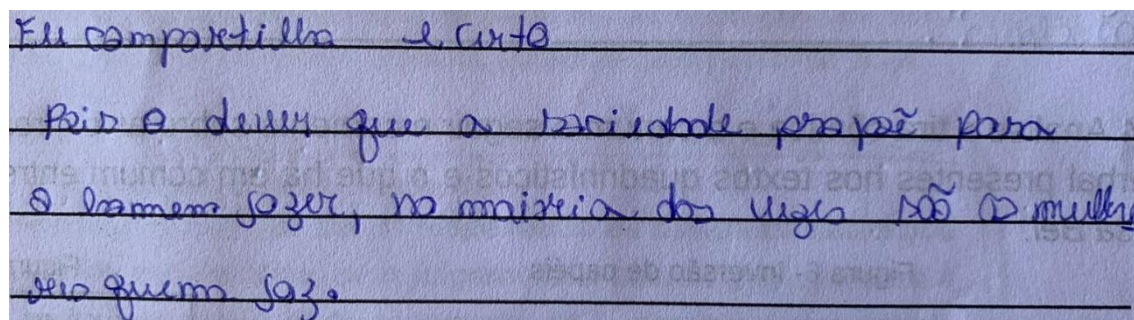 Eu compartilho e curto
Pois o dever que a sociedade propõe para
o homem fazer, na maioria das vezes são as mulhe
res quem faz.